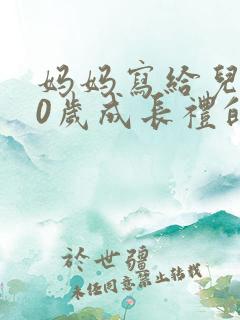 妈妈寫給兒
0歲成长禮
於世疆
未经同意禁止转载